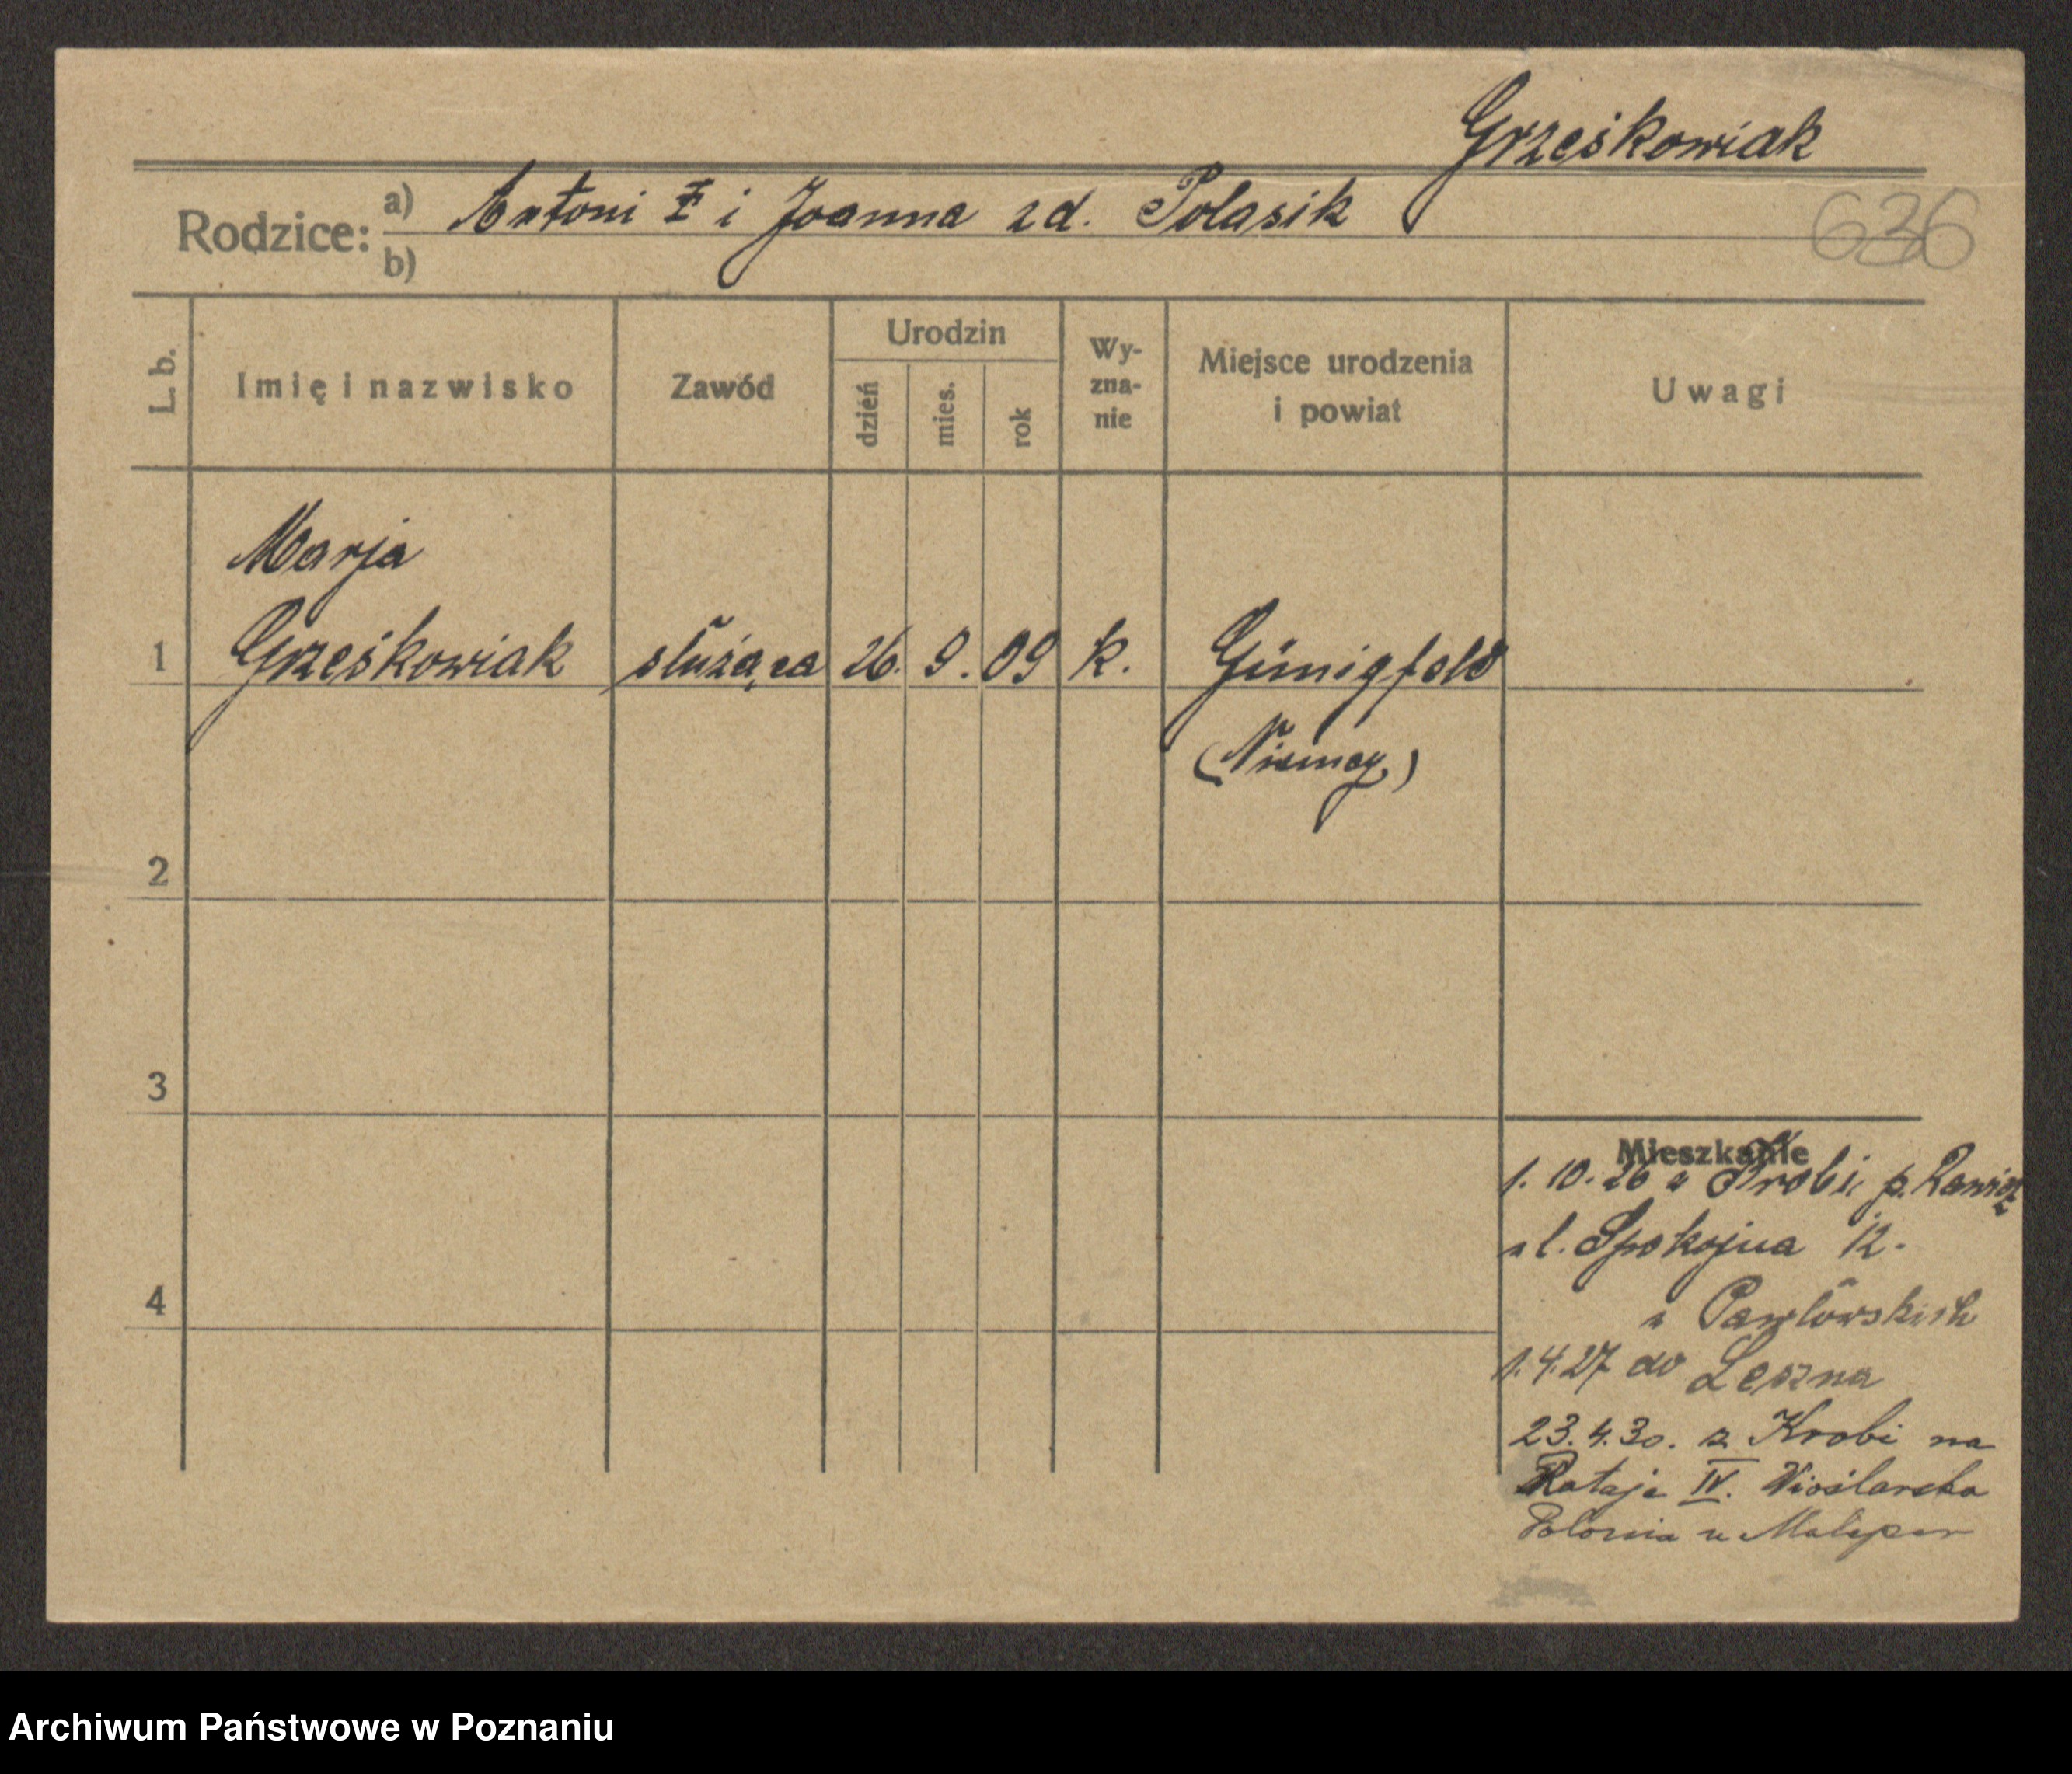 Grześkowiak
Rodzice: a) Antoni I i Joanna zd. Polasik
b)
636
L. b.
Imię i nazwisko
Zawód
Urodzin
dzień
mies.
rok
Wy-
zna-
nie
Miejsce urodzenia
i powiat
Uwagi
Marja
1 Grześkowiak służąca 26. 9. 09 k. Günigfeld
(Niemcy)
2
3
4
Mieszkanie
1. 10. 26 z Krobi p. Rawicz
ul. Spokojna 12.
u Pawłowskich
1.4.27 do Leszna
23.4.30. z Krobi na
Rataje IV. Wioślarska
Polonia u
Archiwum Państwowe w Poznaniu